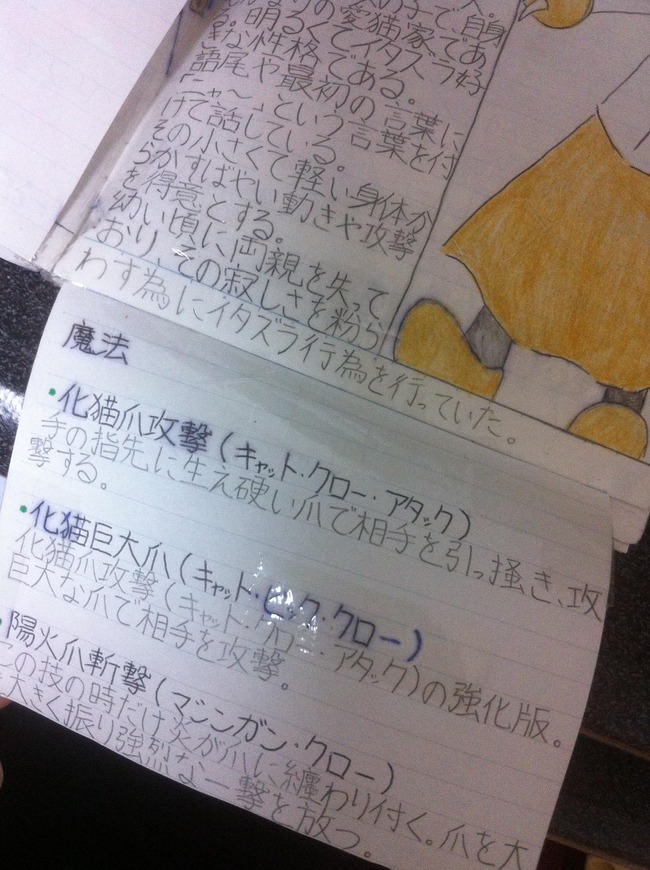 の子で、自身
の愛猫家であ
る。明るくてイタズラ好
きな性格である。
語尾や最初の言葉に
「ニャ〜」という言葉を付
けて話している。
その小さくて軽い身体か
らかすばやい動きや攻撃
を得意とする。
幼い頃に両親を失って
おり、その寂しさを紛ら
わす為にイタズラ行為を行っていた。
魔法
・化猫爪攻撃(キャット・クロー・アタック)
手の指先に生え硬い爪で相手を引っ掻き、攻
撃する。
・化猫巨大爪(キャット・ビック・クロー)
化猫爪攻撃(キャット・クロー・アタック)の強化版。
巨大な爪で相手を攻撃。
・陽火爪斬撃(マシンガン・クロー)
この技の時だけ炎が爪に纏わり付く。爪を大
きく振り強烈な一撃を放つ。